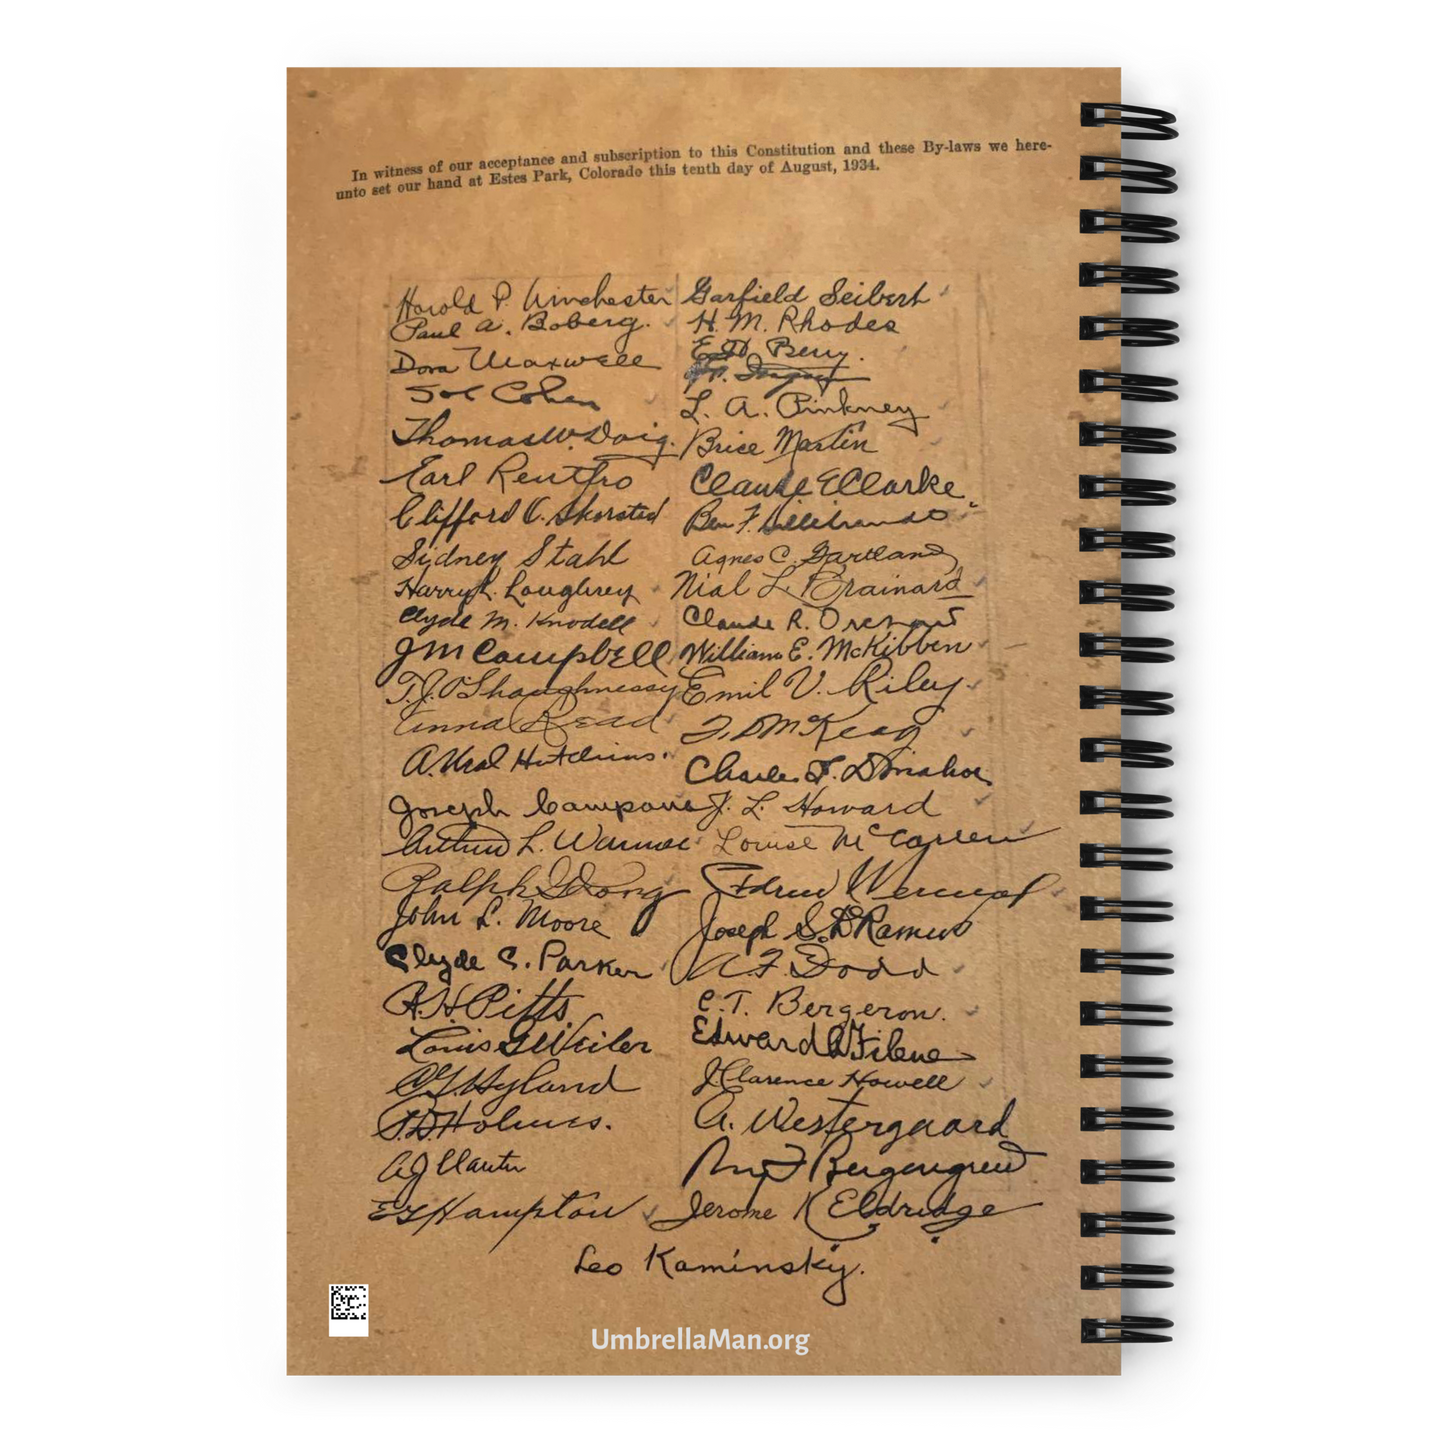 In witness of our acceptance and subscription to this Constitution and these By-laws we here-
unto set our hand at Estes Park, Colorado this tenth day of August, 1934.
Harold P. Winchester
Paul A. Boberg.
Dora Maxwell
Sol Cohen
Thomas W. Doig.
Earl Rentfro
Clifford O. Skorstad
Sidney Stahl
Harry L. Loughrey
Clyde M. Knodell
J M Campbell
T. J. O'Shaughnessy
Anna Read
A. Ural Hutchins.
Joseph Campana
Arthur L. Warmer
Ralph G Long
John L. Moore
Clyde C. Parker
R. H. Pitts
Louis G Weiler
Hyland
Holmes.
A J
E L Hampton
Garfield Seibert
H. M. Rhodes
Berry.
L. A. Pinkney
Brice Martin
Claude E Clarke
Ben F. Hillebrandt
Agnes C. Gartland
Nial L. Brainard
Claude R. Orchard
William E. McKibben
Emil V. Riley.
McKeag
Charles F. Donahoe
J. L. Howard
Louise McCarren
Joseph S. DeRamus
A. F. Dodd
C. T. Bergeron.
Edward A Filene
J Clarence Howell
A. Westergaard
Roy F Bergengren
Jerome K Eldridge
Leo Kaminsky.
UmbrellaMan.org